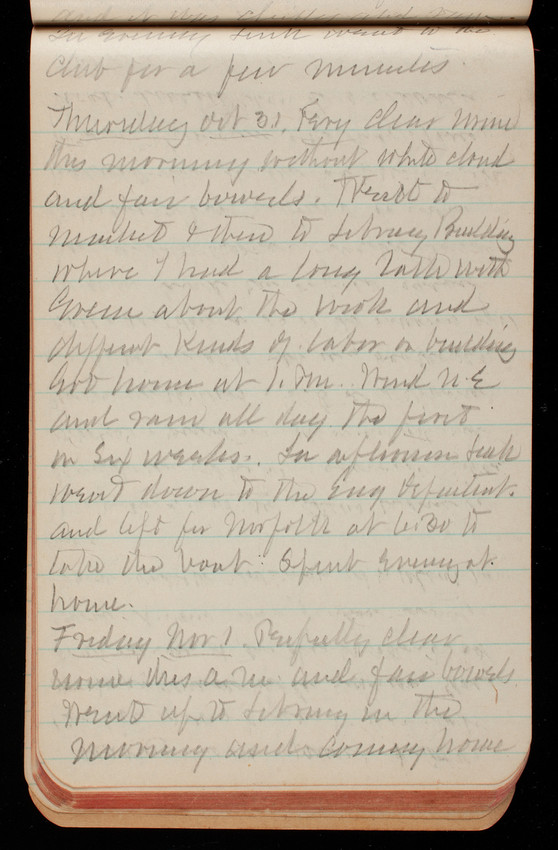 In evening Jack went to the
Club for a few minutes.
Thursday Oct 31. Very clear urine
this morning without white cloud
and fair bowels. Went to
market & then to Library Building
where I had a long talk with
Green about the work and
different kinds of labor on building
Got home at 1. P.M. Wind N.E
and rain all day the first
in six weeks. In afternoon Jack
went down to the Eng Department.
and left for Norfolk at 6:30 to
take the boat. Spent evening at
home.
Friday Nov 1 Perfectly clear
urine this a.m and fair bowels
Went up to Library in the
morning and coming home